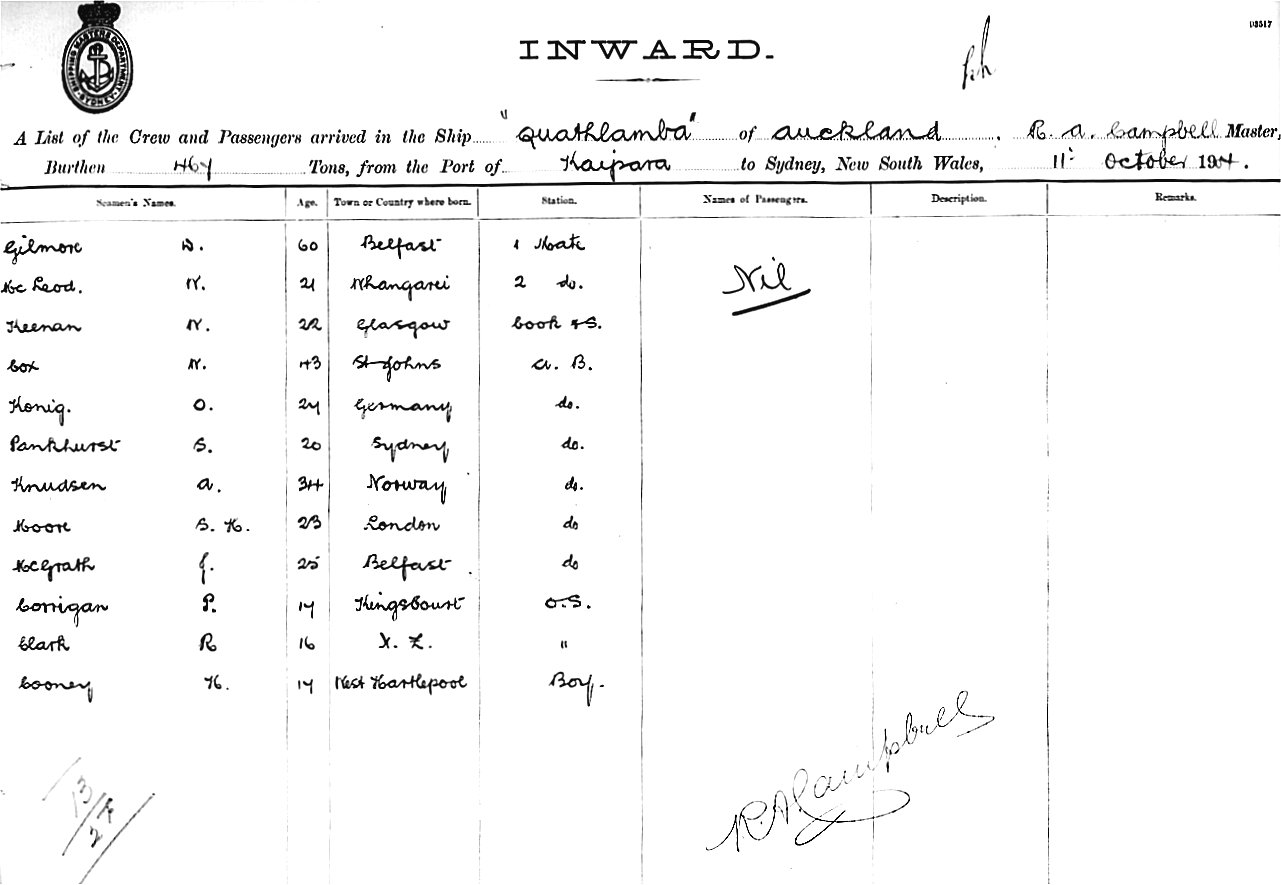 D3517
INWARD.
SHIPPING MASTERS DEPARTMENT SYDNEY
A List of the Crew and Passengers arrived in the Ship "Quathlamba" of Auckland, R. A. Campbell Master,
Burthen 467 Tons, from the Port of Kaipara to Sydney, New South Wales, 11th October 1904.
Seamen's Names. Age. Town or Country where born. Station. Names of Passengers. Description. Remarks.
Gilmore D. 60 Belfast 1 Mate
McLeod. N. 21 Whangarei 2 do. Nil
Keenan W. 22 Glasgow Cook & S.
Cox W. 43 St Johns A. B.
Konig. O. 27 Germany do.
Pankhurst S. 20 Sydney do.
Knudsen A. 34 Norway do.
Moore S. H. 23 London do
McGrath J. 25 Belfast do
Corrigan P. 17 Kingscourt O.S.
Clark R 16 N. Z. "
Cooney H. 17 West Hartlepool Boy.
R. A. Campbell
13/
27